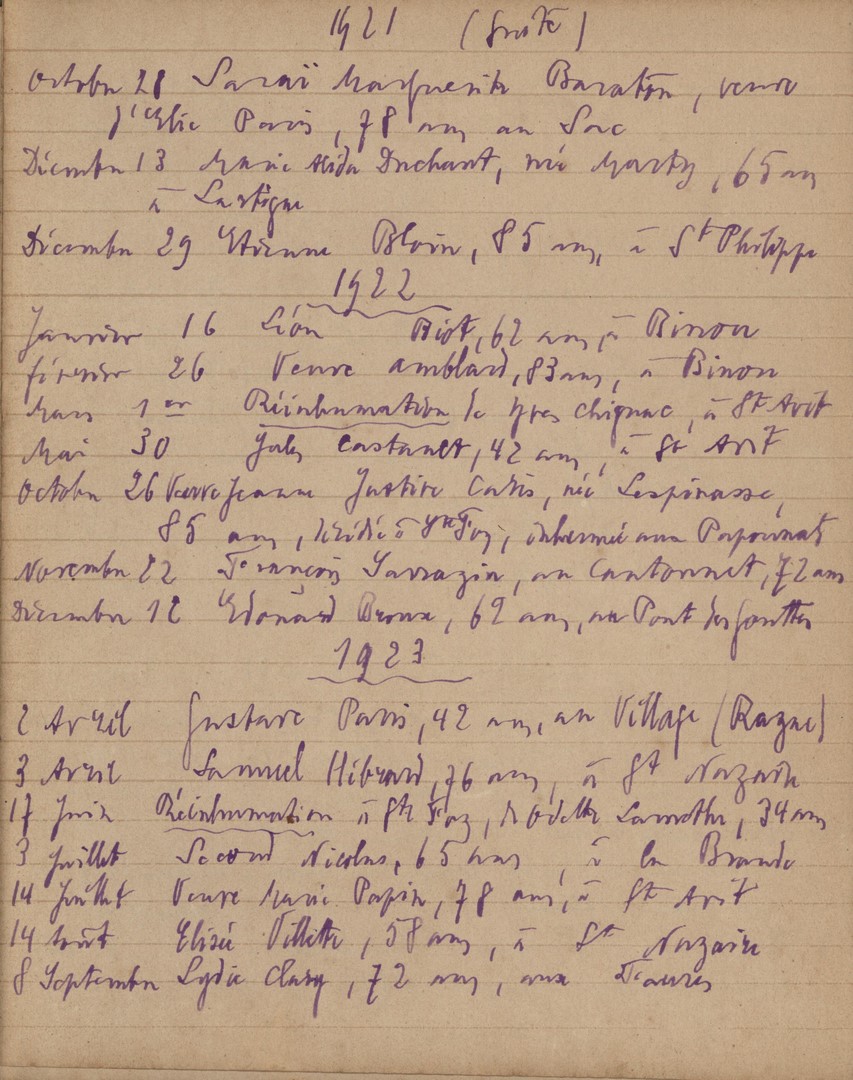 1921 (suite)
Octobre 28 Saraï Marguerite Baraton, veuve
d'Elie Paris, 78 ans au Sac
Décembre 13 Marie Alida Duchant, née Marty, 65 ans
à Lartigue
Décembre 29 Etienne Bloin, 85 ans, à St Philippe
1922
Janvier 16 Léon Biot, 62 ans, à Binou
février 26 Veuve Amblard, 83 ans, à Binou
Mars 1er Réinhumation de Yves Chignac, à St Avit
Mai 30 Castanet, 42 ans, à St Avit
Octobre 26 Veuve Jeanne Justine Catis, née Lespinasse,
85 ans, décédée à Ste Foy, inhumée aux Papounats
Novembre 22 François Sarrazin, au Cantonnet, 72 ans
Décembre 12 Edouard Broux, 62 ans, au Pont des gouttes
1923
2 Avril Gustave Paris, 42 ans, au Village (Razac)
3 Avril Samuel Hibrard, 76 ans, à St Nazaire
17 Juin Réinhumation à Ste Foy, de Odette Lamothe, 34 ans
3 Juillet Second Nicolas, 65 ans, à la Brande
14 Juillet Veuve Marie Papin, 78 ans, à St Avit
14 Août Elisée Villette, 58 ans, à St Nazaire
8 Septembre Lydie Clary, 72 ans, aux Faures